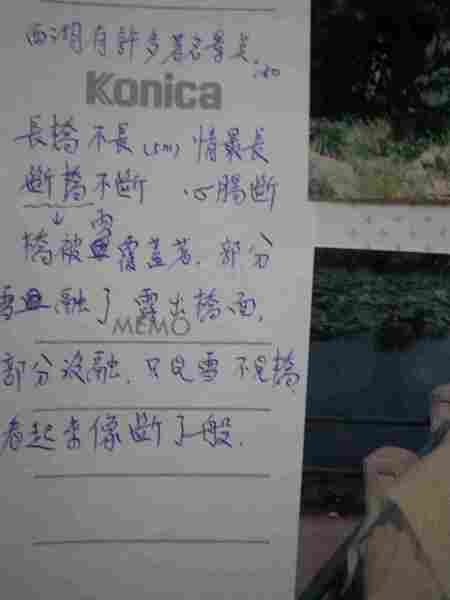 西湖有許多著名景点.
如
Konica
長橋不長(5m) 情最長
斷橋不斷 心腸斷
↓ 雪
橋被覆蓋著. 部分
雪融了露出橋面.
MEMO
部分沒融. 只見雪不見橋
看起來像斷了一般.